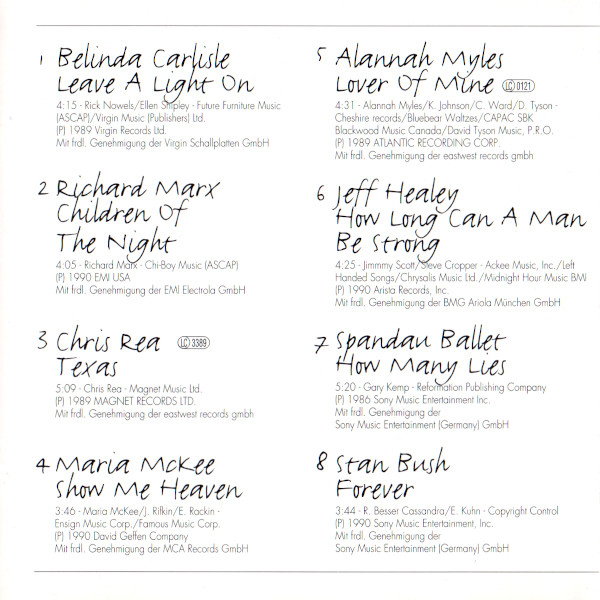 1 Belinda Carlisle
Leave A Light On
4:15 - Rick Nowels/Ellen Shipley - Future Furniture Music
(ASCAP)/Virgin Music (Publishers) Ltd.
(P) 1989 Virgin Records Ltd.
Mit frdl. Genehmigung der Virgin Schallplatten GmbH
2 Richard Marx
Children Of
The Night
4:05 - Richard Marx - Chi-Boy Music (ASCAP)
(P) 1990 EMI USA
Mit frdl. Genehmigung der EMI Electrola GmbH
3 Chris Rea LC 3389
Texas
5:09 - Chris Rea - Magnet Music Ltd.
(P) 1989 MAGNET RECORDS LTD.
Mit frdl. Genehmigung der eastwest records gmbh
4 Maria McKee
Show Me Heaven
3:46 - Maria McKee/J. Rifkin/E. Rackin -
Ensign Music Corp./Famous Music Corp.
(P) 1990 David Geffen Company
Mit frdl. Genehmigung der MCA Records GmbH
5 Alannah Myles
Lover Of Mine LC 0121
4:31 - Alannah Myles/K. Johnson/C. Ward/D. Tyson -
Cheshire records/Bluebear Waltzes/CAPAC SBK
Blackwood Music Canada/David Tyson Music, P.R.O.
(P) 1989 ATLANTIC RECORDING CORP.
Mit frdl. Genehmigung der eastwest records gmbh
6 Jeff Healey
How Long Can A Man
Be Strong
4:25 - Jimmmy Scott/Steve Cropper - Ackee Music, Inc./Left
Handed Songs/Chrysalis Music Ltd./Midnight Hour Music BMI
(P) 1990 Arista Records, Inc.
Mit frdl. Genehmigung der BMG Ariola München GmbH
7 Spandau Ballet
How Many Lies
5:20 - Gary Kemp - Reformation Publishing Company
(P) 1986 Sony Music Entertainment Inc.
Mit frdl. Genehmigung der
Sony Music Entertainment (Germany) GmbH
8 Stan Bush
Forever
3:44 - R. Besser Cassandra/E. Kuhn - Copyright Control
(P) 1990 Sony Music Entertainment, Inc.
Mit frdl. Genehmigung der
Sony Music Entertainment (Germany) GmbH